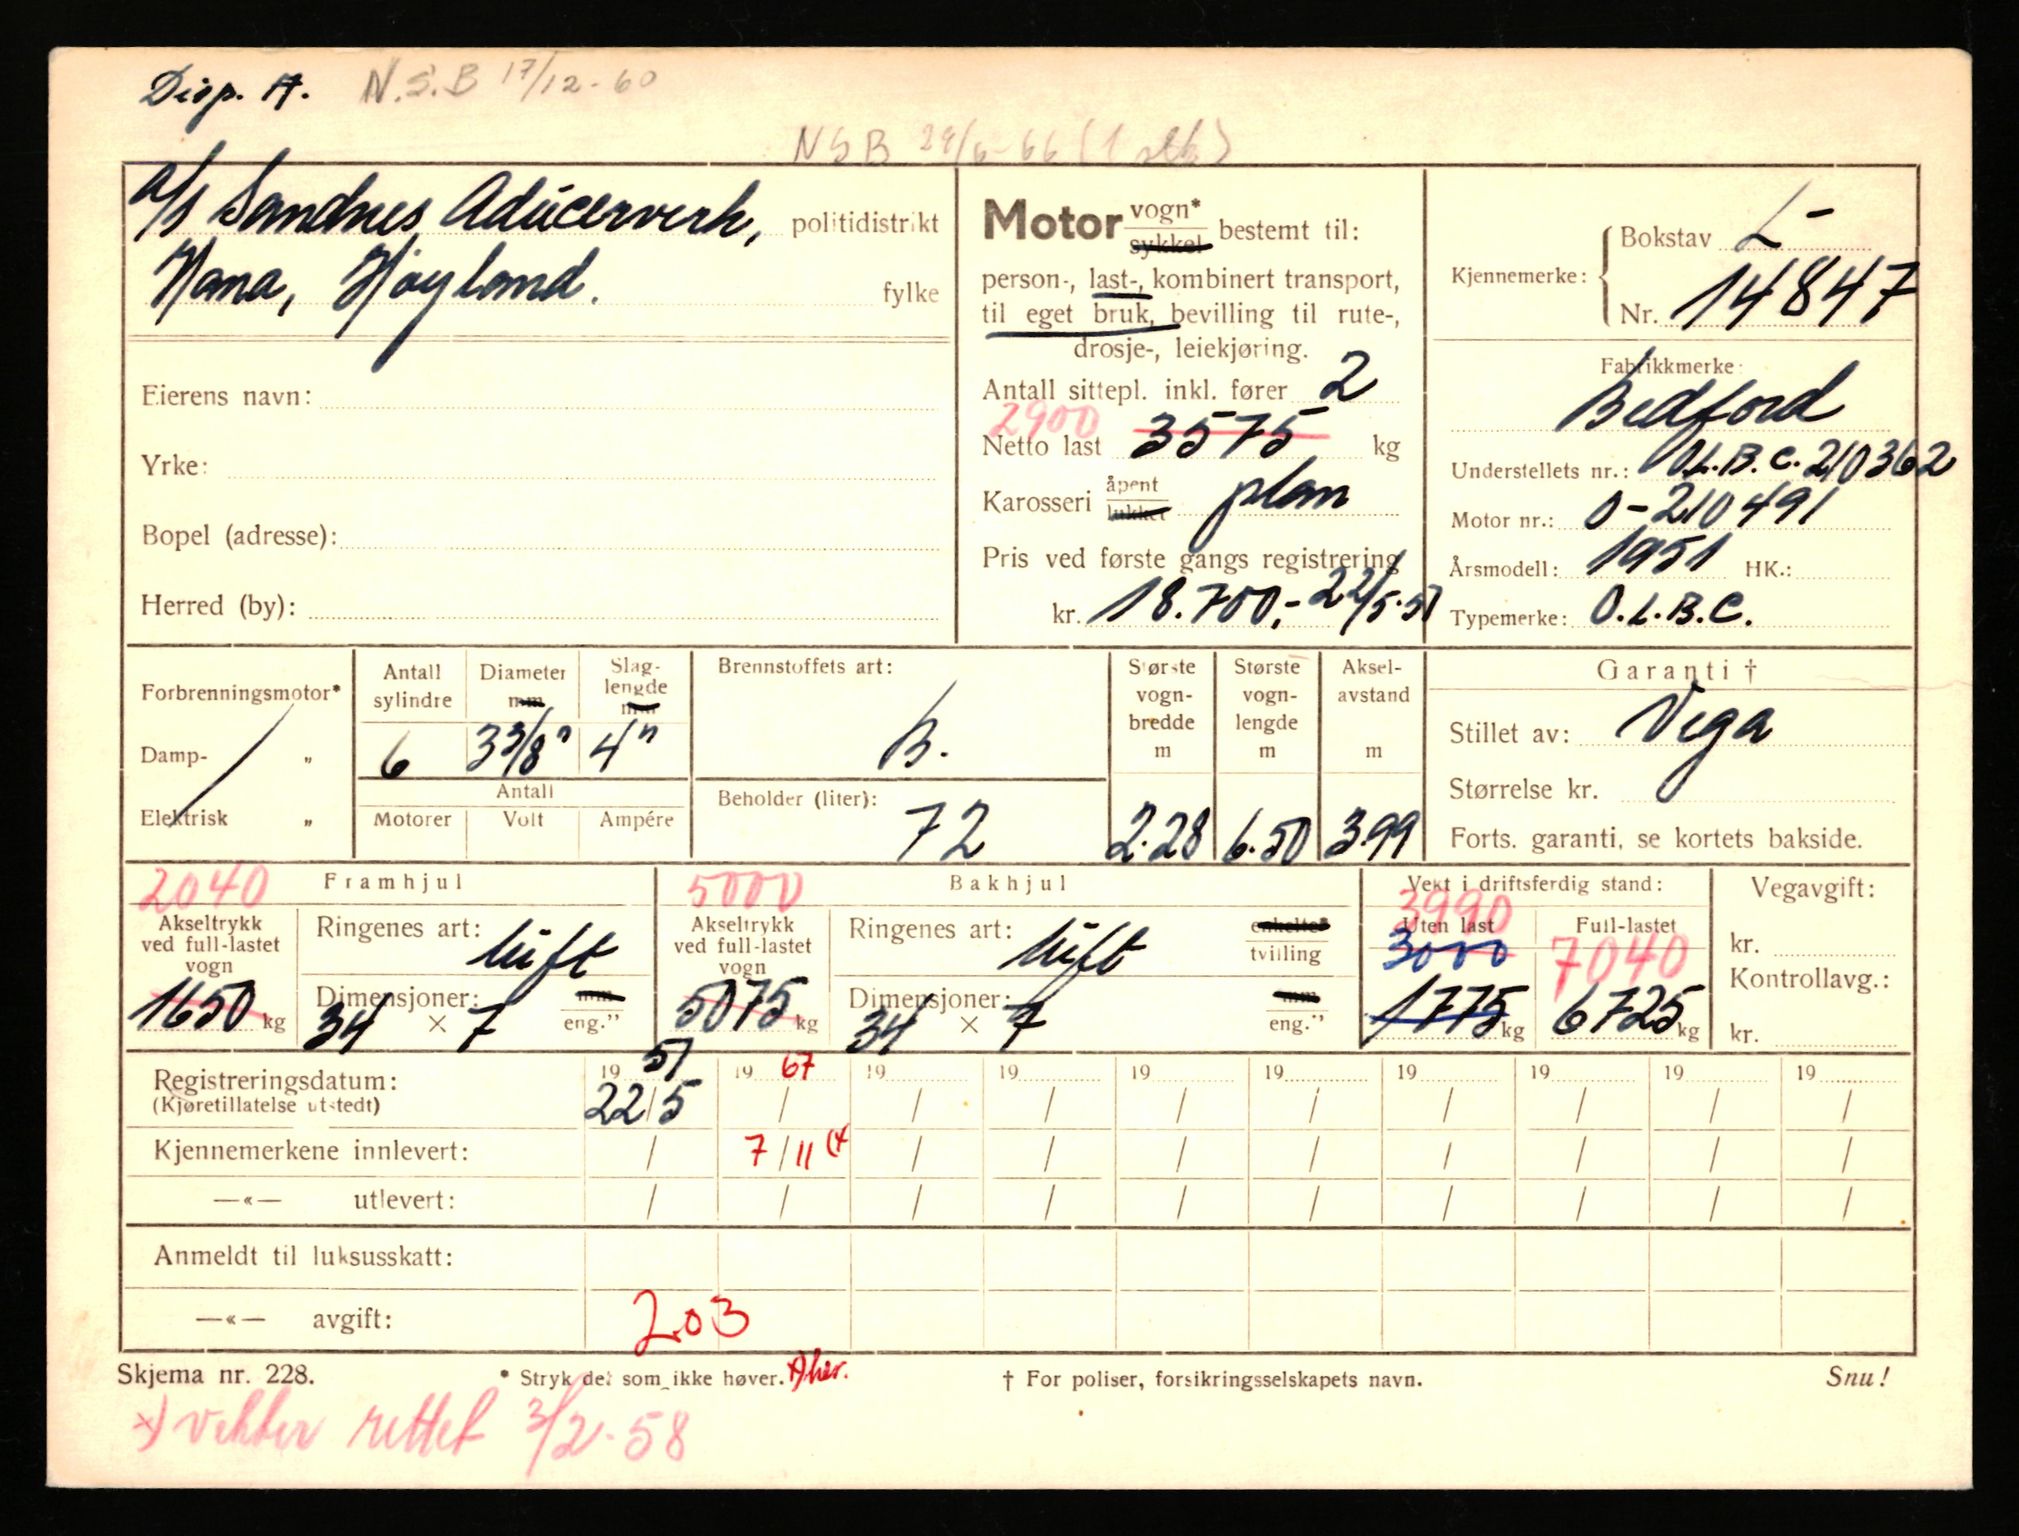 Disp. A. N.S.B 17/12-60
NSB 29/6-66 (1 stk)
a/s Sandnes Aducerverk, politidistrikt
Hana, Høyland. fylke
Eierens navn:
Yrke:
Bopel (adresse):
Herred (by):
Motor vogn* sykkel bestemt til:
person-, last-, kombinert transport,
til eget bruk, bevilling til rute-,
drosje-, leiekjøring.
Antall sittepl. inkl. fører 2
2900
Netto last 3575 kg
Karosseri åpent lukket plan
Pris ved første gangs registrering
kr. 18.700,- 22/5-51
Kjennemerke: Bokstav L-
Nr. 14847
Fabrikkmerke:
Bedford
Understellets nr.: O.L.B.C. 210362
Motor nr.: O-210491
Årsmodell: 1951 HK.:
Typemerke: O.L.B.C.
Forbrenningsmotor*
Damp- „
Elektrisk „
Antall sylindre 6
Diameter mm 3 3/8"
Slag-lengde mm 4"
Antall
Motorer Volt Ampére
Brennstoffets art:
B.
Beholder (liter):
72
Største vogn-bredde m 2.28
Største vogn-lengde m 6.50
Aksel-avstand m 3.99
Garanti †
Stillet av: Vega
Størrelse kr.
Forts. garanti, se kortets bakside.
2040 Framhjul
Akseltrykk ved full-lastet vogn 1650 kg
Ringenes art: luft
Dimensjoner: 34 × 7 mm eng."
5000 Bakhjul
Akseltrykk ved full-lastet vogn 5075 kg
Ringenes art: luft enkelte* tvilling
Dimensjoner: 34 × 7 mm eng."
Vekt i driftsferdig stand:
3990
Uten last 3000 1775 kg
Full-lastet 7040 6725 kg
Vegavgift:
kr.
Kontrollavg.:
kr.
Registreringsdatum: 19 51 19 67 19 19 19 19 19 19 19 19
(Kjøretillatelse utstedt) 22/5 / / / / / / / / /
Kjennemerkene innlevert: / 7/11 / / / / / / / /
—«— utlevert: / / / / / / / / / /
Anmeldt til luksusskatt:
—«— avgift: 203
Skjema nr. 228. * Stryk det som ikke høver. † For poliser, forsikringsselskapets navn. Snu!
x) vekter rettet 3/2-58